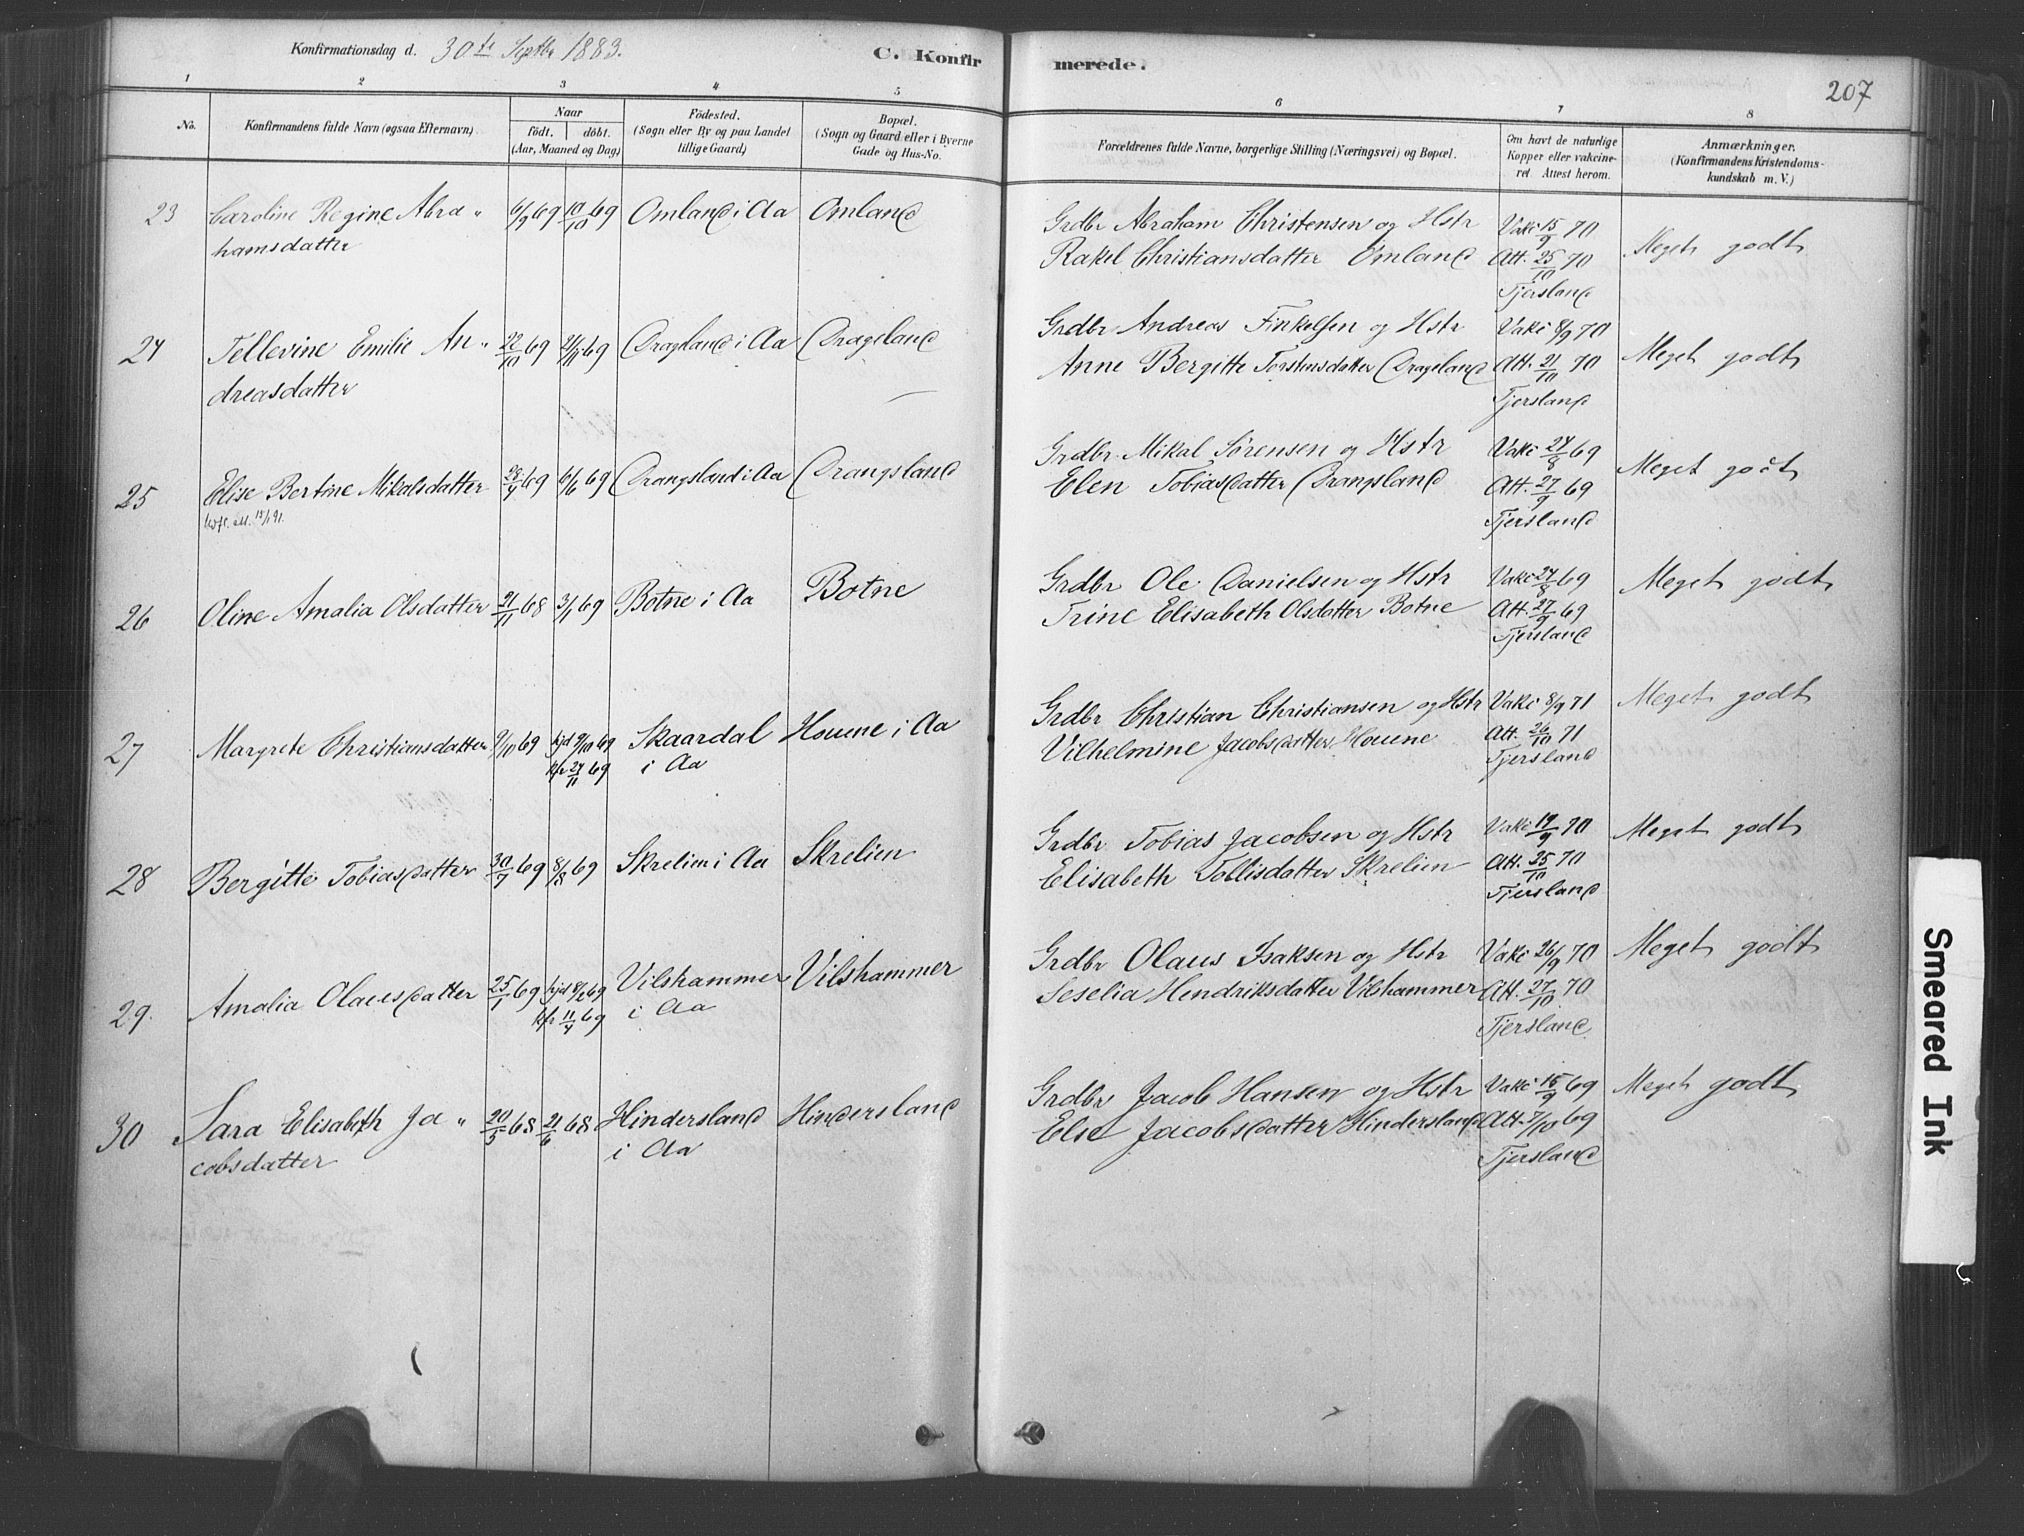 Konfirmationsdag d. 30te Septbr 1883.
C. Konfirmerede.
207
1 2 3 4 5 6 7 8
No.
Konfirmandens fulde Navn (ogsaa Efternavn).
Naar
födt. döbt.
(Aar, Maaned og Dag)
Födested.
(Sogn eller By og paa Landet
tillige Gaard)
Bopæl.
(Sogn og Gaard eller i Byerne
Gade og Hus-No.
Forældrenes fulde Navne, borgerlige Stilling (Næringsvei) og Bopæl.
Om havt de naturlige
Kopper eller vakcine-
ret. Attest herom.
Anmærkninger.
(Konfirmandens Kristendoms-
kundskab m. V.)
23 Caroline Regine Abra- 6/9 69 10/10 69 Omland i Aa Omland Grdbr Abraham Christensen og Hstr Vakc 15/9 70 Meget godt
hamsdatter Rakel Christiansdatter Omland Att. 25/10 70
Tjersland
24 Tellevine Emilie An- 22/10 69 21/11 69 Drageland i Aa Drageland Grdbr Andreas Finkelsen og Hstr Vakc 8/9 70 Meget godt
dreasdatter Anne Bergitte Torstensdatter Drageland Att. 21/10 70
Tjersland
25 Elise Bertine Mikalsdatter 28/4 69 6/6 69 Drangsland i Aa Drangsland Grdbr Mikal Sørensen og Hstr Vakc 24/8 69 Meget godt
att. 15/1 91. Elen Tobiasdatter Drangsland Att. 27/9 69
Tjersland
26 Oline Amalia Olsdatter 21/11 68 3/1 69 Botne i Aa Botne Grdbr Ole Danielsen og Hstr Vakc 24/8 69 Meget godt
Trine Elisabeth Olsdatter Botne Att. 27/9 69
Tjersland
27 Margrete Christiansdatter 9/10 69 hjd 9/10 69 Skaardal Houene i Aa Grdbr Christian Christiansen og Hstr Vakc 8/9 71 Meget godt
kfr 24/11 69 i Aa Vilhelmine Jacobsdatter Houene Att. 26/10 71
Tjersland
28 Bergitte Tobiasdatter 30/7 69 8/8 69 Skrelien i Aa Skrelien Grdbr Tobias Jacobsen og Hstr Vakc 19/9 70 Meget godt
Elisabeth Tollisdatter Skrelien Att. 25/10 70
Tjersland
29. Amalia Olausdatter 25/1 69 hjd 8/2 69 Vilshammer Vilshammer Grdbr Olaus Isaksen og Hstr Vakc 26/9 70 Meget godt
kfr 11/4 69 i Aa Seselia Hendriksdatter Vilshammer Att. 27/10 70
Tjersland
30 Sara Elisabeth Ja- 20/5 68 21/6 68 Hindersland Hindersland Grdbr Jacob Hansen og Hstr Vakc 15/9 69 Meget godt
cobsdatter i Aa Else Jacobsdatter Hindersland Att. 7/10 69
Tjersland
Smeared Ink